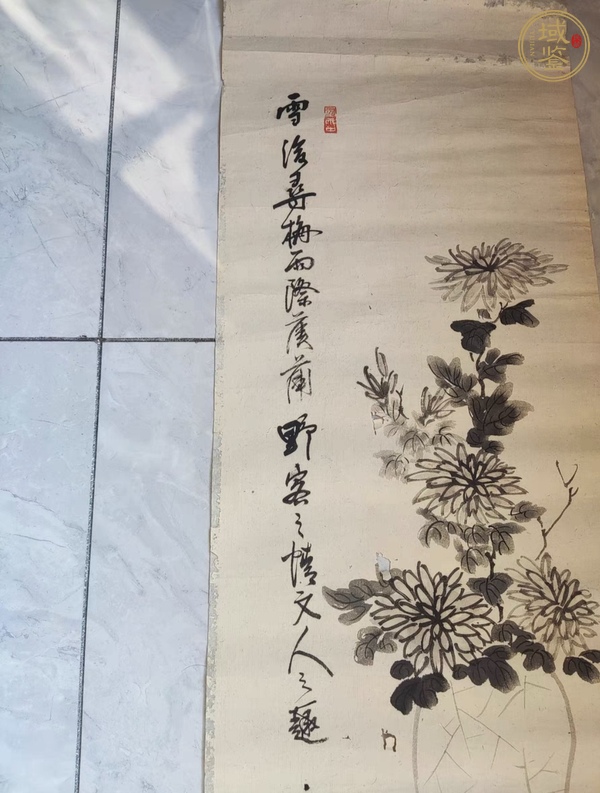 雪後尋梅雨際護蘭野客之情文人之趣
域鉴